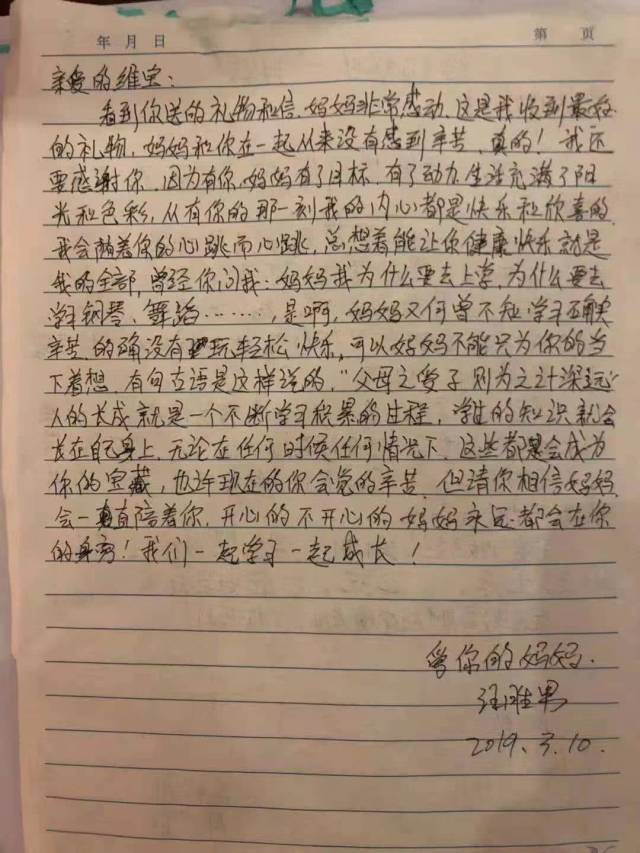 年 月 日 第 页
亲爱的维宝:
看到你送的礼物和信,妈妈非常感动,这是我收到最好
的礼物,妈妈和你在一起从来没有感到辛苦,真的!我还
要感谢你,因为有你,妈妈有了目标,有了动力,生活充满了阳
光和色彩,从有你的那一刻我的内心都是快乐和欣喜的,
我会随着你的心跳而心跳,总想着能让你健康快乐就是
我的全部,曾经你问我:妈妈我为什么要去上学,为什么要去
学钢琴、舞蹈……,是啊,妈妈又何曾不知学习的确
辛苦,的确没有玩轻松快乐,可以妈妈不能只为你的当
下着想,有句古语是这样说的,"父母之爱子则为之计深远"
人的长成就是一个不断学习积累的过程,学过的知识就会
长在自己身上,无论在任何时候任何情况下,这些都会成为
你的宝藏,也许现在的你会觉的辛苦,但请你相信妈妈
会一直陪着你,开心的不开心的妈妈永远都会在你
的身旁!我们一起学习一起成长!
爱你的妈妈.
汪雅男
2019.3.10.